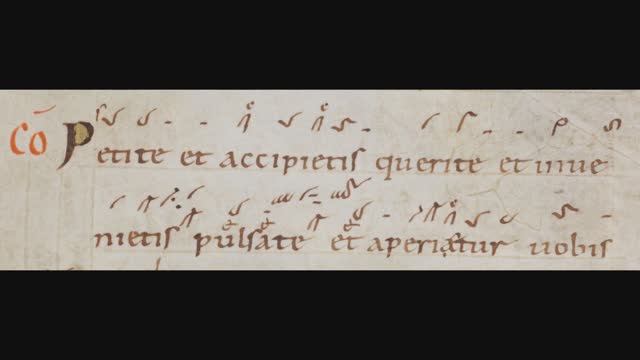 Cō Petite et accipietis querite et inue
nietis pulsate et aperiaetur uobis